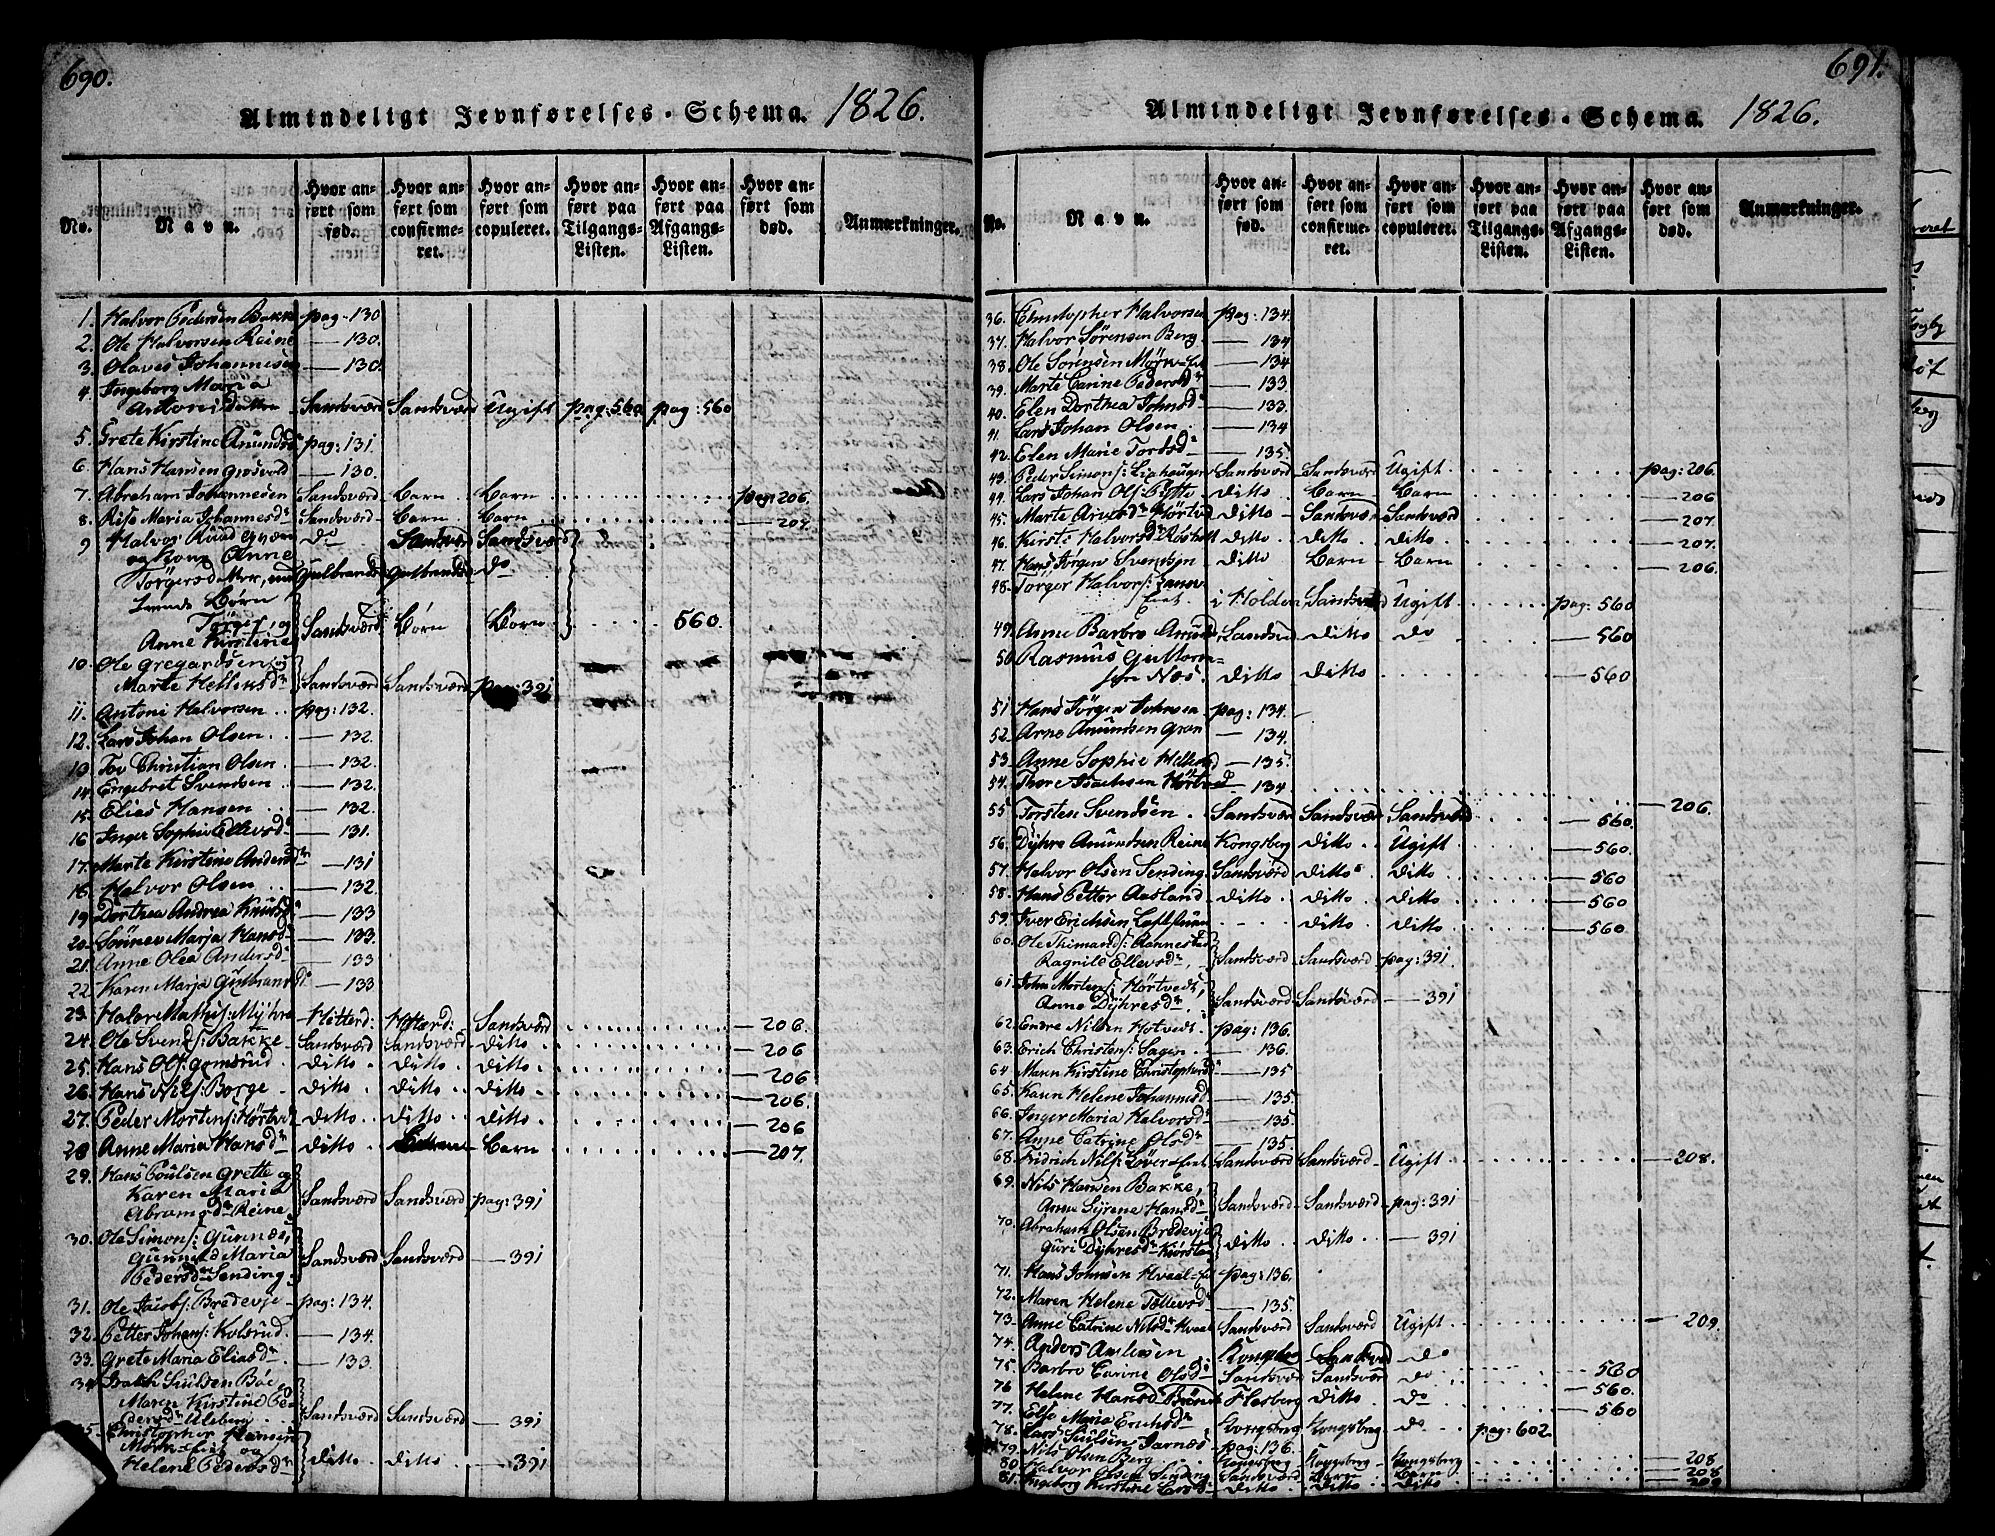 690.
Almindeligt Jevnførelses-Schema. 1826.
No. Navn. Hvor anført som fød. Hvor anført som confirmeret. Hvor anført som copuleret. Hvor anført paa Tilgangs-Listen. Hvor anført paa Afgangs-Listen. Hvor anført som død. Anmærkninger.
1. Halvor Pedersen Bakke pag. 130
2. Ole Halvorsen Reine — 130.
3. Olaves Johannesen — 130.
4. Ingeborg Maria
Sandsværd Sandsværd Ugift pag: 560 pag: 560
5. Grete Kirstine Anundsd pag: 131.
6. Hans Hansen Grosvold — 130.
7. Abraham Johannesen Sandsværd Barn Barn pag: 206.
8. Maria Johannesdr Sandsværd Barn Barn — 207.
9 Halvor do Sandsværd Sandsværd
og Kone Anne
Børn
Torger, og Sandsværd Børn Børn 560.
Anne Kirstine
10. Ole Gregardsen og
Marte Hellensdr Sandsværd Sandsværd pag: 391
11. Antoni Halvorsen pag: 132.
12. Lars Johan Olsen — 132.
13 Tov Christian Olsen — 132.
14. Engebret Svendsen — 132.
15. Elias Hansen — 132.
16 Inger Sophie Ellevsdr — 131.
17. Marte Kirstine Andersdr — 131
18. Halvor Olsen — 132.
19 Dorthea Andrea Knudsd — 133
20. Sönnev Marja Hansd — 133.
21. Anne Olea Andersdr — 133
22. Karen Marja Gulbransdr — 133
23. Halvor Mathis: Myhre Hitterd: Hitterd: Sandsværd — 206.
24. Ole Svends: Bakke Sandsværd Sandsværd ditto — 206
25. Hans Ols: Gomsrud ditto ditto ditto — 206
26. Hans Nils: Borge ditto ditto ditto — 206.
27. Peder Mortens: Hörtved ditto ditto ditto — 206
28 Anne Maria Hansdr ditto Barn — 207.
29. Hans Poulsen Grette og
Karen Maria Sandsværd Sandsværd pag: 391
Abramsdr Reine
30. Ole Simons: Gunnes,
Gunnild Maria Sandsværd Sandsværd — 391
Pedersdr Sending
31. Ole Jacobs: Bredevje pag: 134.
32. Petter Johans: Kolsrud — 134.
33. Grete Maria Eliasdr — 133.
34 Böe,
Maren Kirstine Pe- Sandsværd Sandsværd — 391
dersdr Ulsberg
35 Christopher Hansen
og ditto ditto — 391
Helene Pedersdr
691.
Almindeligt Jevnførelses-Schema. 1826.
No. Navn. Hvor anført som fød. Hvor anført som confirmeret. Hvor anført som copuleret. Hvor anført paa Tilgangs-Listen. Hvor anført paa Afgangs-Listen. Hvor anført som død. Anmærkninger.
36. Christopher Halvorsen pag: 134.
37. Halvor Sörensen Berg — 134
38. Ole Sörensen — 134
39. Marte Carine Pedersdr — 133.
40. Elen Dorthea Johnsdr — 133.
41. Lars Johan Olsen — 134
42. Elen Marie Tordsdr — 135.
43. Peder Simons: Sandsværd Sandsværd Ugift pag: 206.
44. Lars Johan Ols: ditto Barn Barn — 206
45. Marte Hörtved ditto Sandsværd Sandsværd — 207.
46. Kirsti Halvorsdr ditto ditto ditto — 207.
47. Hans Jörgen Svendsen ditto Barn Barn — 206.
48. Torger Halvors:
i Holden Sandsværd Ugift pag: 560
49. Anne Barbro Sandsværd ditto do — 560
50 Rasmus
Næs. ditto ditto — 560
51 Hans Jörgen Johnsen pag: 134.
52. Arne Anundsen — 134.
53 Anne Sophie — 135.
54. Thore Isachsen Hörtved — 134 — 206.
55 Torsten Svendsen Sandsværd Sandsværd Sandsværd — 560.
56. Dyhre Amundsen Reine Kongsberg ditto Ugift — 560.
57. Halvor Olsen Sending Sandsværd ditto ditto — 560
58. Hans Petter Aasland ditto ditto ditto — 560
59. Iver Erichsen ditto ditto — 560
60. Ole Rannestad
Ragnild Ellevsdr Sandsværd Sandsværd pag: 391
61. John Mortens: Hörtvedt,
Anne Dyhresdr Sandsværd Sandsværd — 391
62. Endre Nilsen Hotvedt pag: 136.
63. Erich Christens: Sagen — 136.
64 Maren Kirstine Christophersd — 135
65. Karen Helene Johannesd — 135.
66. Inger Maria Halvorsdr — 135.
67. Anne Catrine Olsdr — 135.
68. Fridrich Nils: Sandsværd Sandsværd Ugift — 208.
69. Nils Hansen Bakke,
Anne Syrene Hansdr Sandsværd Sandsværd pag: 391
70. Abraham Olsen Bredevje
Guri Dyhresdr ditto ditto — 391
71. Hans Johnsen Hvael pag: 136.
72. Maren Helene Tollevsdr — 135.
73. Anne Catrine Nilsdr Hvael Sandsværd Sandsværd Ugift — 209.
74. Anders Sandsværd do
75. Barbro Carine Olsdr Sandsværd Sandsværd do — 560
76 Helene Hansdr Flesberg ditto do — 560.
77. Else Maria Erichsdr Kongsberg Kongsberg do pag: 602. — 560
78. Lars Jarnæs pag: 136.
79. Nils Olsen Berg Kongsberg Kongsberg Kongsberg — 208
80 Halvor Olsen Sending Sandsværd Barn Barn — 208
81. Ingeborg Kirstine Larsdr ditto ditto ditto — 209